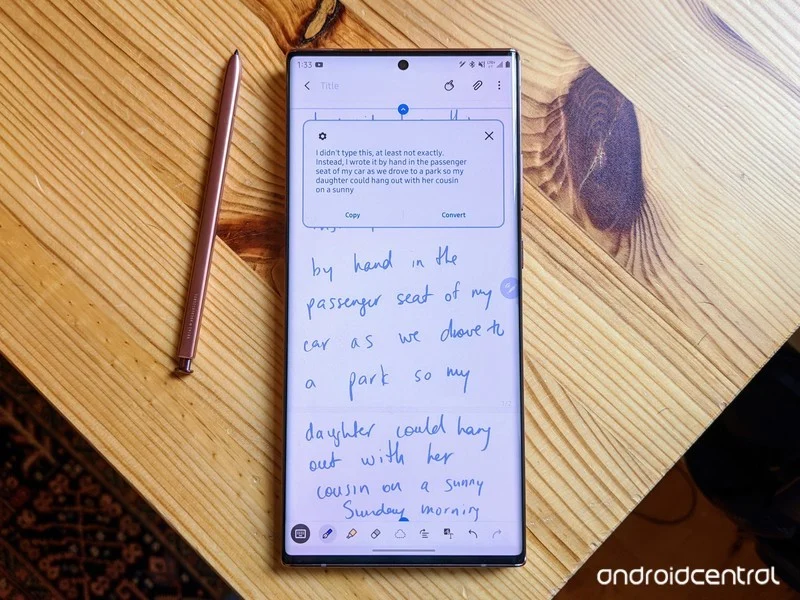 1:33
Title
I didn't type this, at least not exactly.
Instead, I wrote it by hand in the passenger
seat of my car as we drove to a park so my
daughter could hang out with her cousin
on a sunny
Copy Convert
by hand in the
passenger seat of my
car as we drove to
a park so my
daughter could hang
out with her
cousin on a sunny
Sunday morning
androidcentral